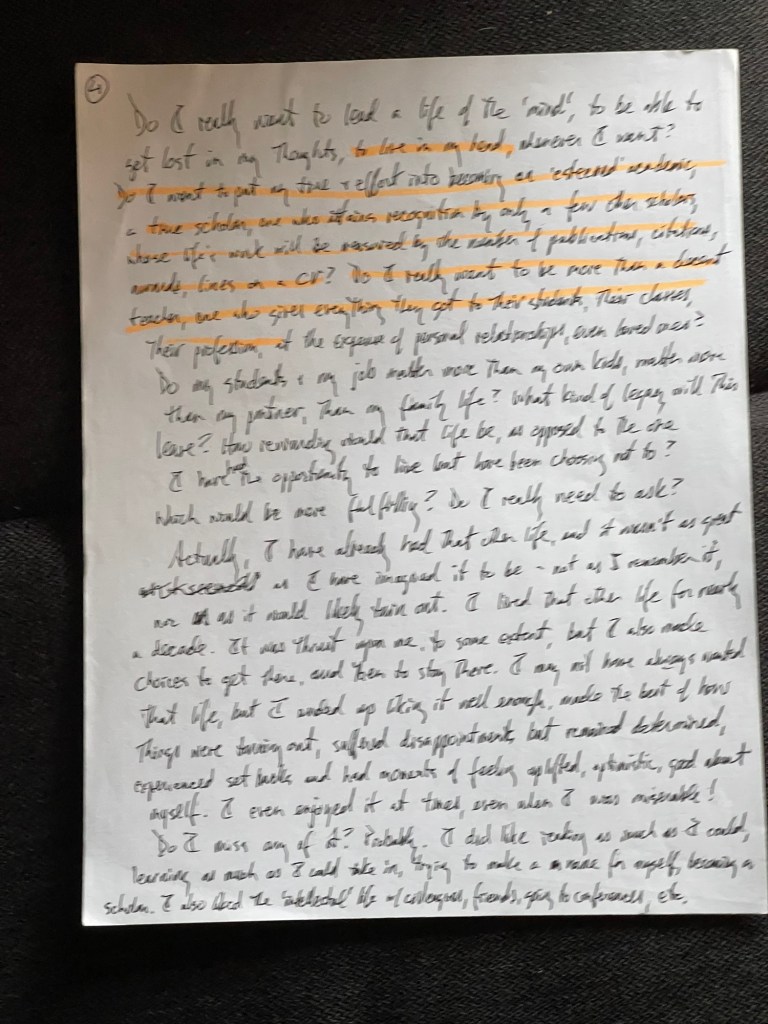 4
Do I really want to lead a life of the 'mind', to be able to
get lost in my thoughts, to live in my head, whenever I want?
Do I want to put my time & effort into becoming an 'esteemed' academic,
a true scholar, one who attains recognition by only a few other scholars,
whose life's work will be measured by the number of publications, citations,
awards, lines on a CV? Do I really want to be more than a decent
teacher, one who gives everything they got to their students, their classes,
their profession, at the expense of personal relationships, even loved ones?
Do my students & my job matter more than my own kids, matter more
than my partner, than my family life? What kind of legacy will this
leave? How rewarding would that life be, as opposed to the one
I have had the opportunity to live but have been choosing not to?
Which would be more fulfilling? Do I really need to ask?
Actually, I have already had that other life, and it wasn't as great
as I have imagined it to be - not as I remember it,
nor as it would likely turn out. I lived that other life for nearly
a decade. It was thrust upon me, to some extent, but I also made
choices to get there, and then to stay there. I may not have always wanted
that life, but I ended up liking it well enough, made the best of how
things were turning out, suffered disappointments but remained determined,
experienced set backs and had moments of feeling uplifted, optimistic, good about
myself. I even enjoyed it at times, even when I was miserable!
Do I miss any of it? Probably. I did like reading as much as I could,
learning as much as I could take in, trying to make a name for myself, becoming a
scholar. I also liked the 'intellectual' life w/ colleagues, friends, going to conferences, etc.